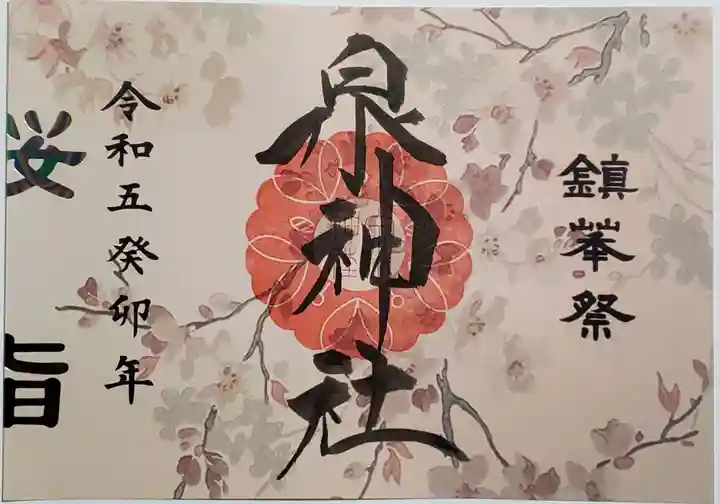 鎮峯祭
泉神社
令和五癸卯年